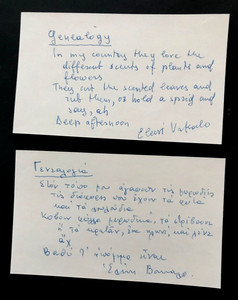 Genealogy
In my country they love the
different scents of plants and
flowers
They cut the scented leaves and
rub them, or hold a sprig and
say, ah
Deep afternoon
Eleni Vakalo
Γενεαλογία
Στον τόπο μου αγαπούν τις μυρωδιές
τις διάφορες που έχουν τα φυτά
και τα λουλούδια
Κόβουν φύλλα μυρωδικά, τα τρίβουνε
ή τα κρατάν, ένα κλωνί, και λένε
ἄχ
Βαθύ τ' απόγεμα είναι
Ελένη Βακαλό